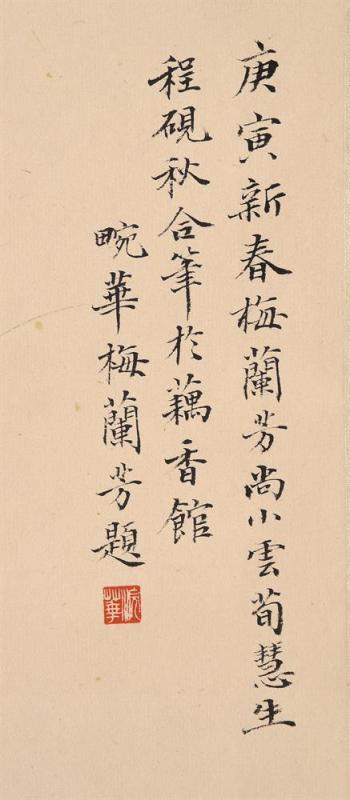 庚寅新春梅蘭芳尚小雲荀慧生
程硯秋合筆於藕香館
畹華梅蘭芳題
畹華